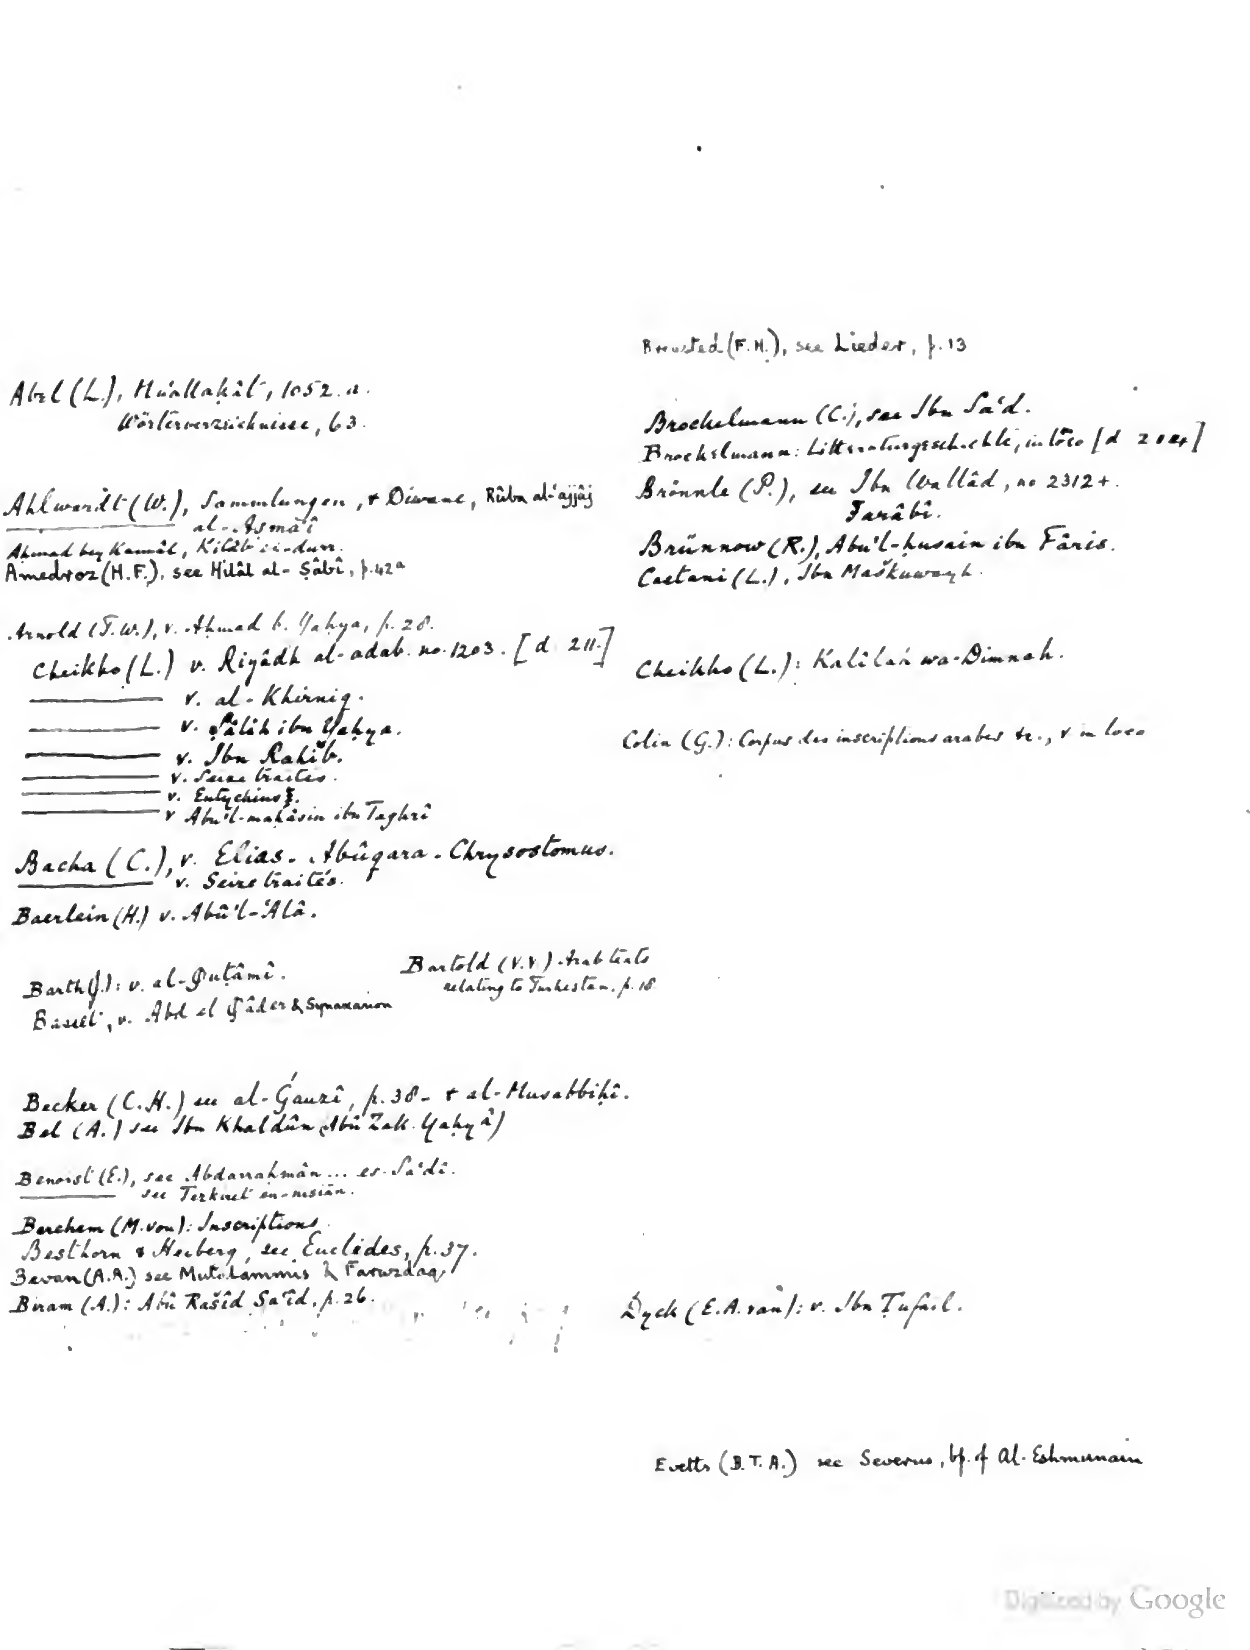 Abel (L.), Mu'allaḳât, 1052.a.
Wörterverzeichnisse, 63.
Ahlwardt (W.), Sammlungen, + Diwane, Rûba al-'ajjâj
al-Asma'î
Aḥmad bey Kamâl, Kitâb ed-durr.
Amedroz (H.F.), see Hilâl al-Ṣâbî, p.42a
Arnold (T.W.), v. Aḥmad b. Yaḥya, p. 28.
Cheikho (L.) v. Riyâdh al-adab. no. 1203. [d 211.]
——— v. al-Khirniq.
——— v. Ṣâliḥ ibn Yaḥya.
——— v. Ibn Rahib.
——— v. Seize traités.
——— v. Eutychius.
——— v Abu'l-maḥâsin ibn Taghrî
Bacha (C.), v. Elias - Abûqara - Chrysostomus.
——— v. Seize traités.
Baerlein (H.) v. Abû'l-'Alâ.
Barth (J.): v. al-Quṭâmî.
Bartold (V.V.) Arab texts
relating to Turkestan. p. 18
Basset, v. Abd el Qâder & Synaxarion
Becker (C.H.) see al-Ǵauzî, p. 38 - + al-Musabbiḥî.
Bel (A.) see Ibn Khaldûn (Abû Zak. Yaḥyâ)
Benoist (E.), see Abdarraḥmân ... es-Sa'dî.
——— see Tezkiret en-nisiān.
Berchem (M. von): Inscriptions.
Besthorn & Heiberg, see Euclides, p. 37.
Bevan (A.A.) see Mutalammis & Farazdaq
Biram (A.): Abû Rašîd Sa'îd. p. 26.
(F.H.), see Lieder, p. 13
Brockelmann (C.), see Ibn Sa'd.
Brockelmann: Litteraturgeschichte, in loco [d 204]
Brönnle (P.), see Ibn Wallâd, no 2312+.
Farâbî.
Brünnow (R.), Abu'l-ḥusain ibn Fâris.
Caetani (L.), Ibn Maškuwayh.
Cheikho (L.): Kalîlah wa-Dimnah.
Colin (G.): Corpus des inscriptions arabes &c., v in loco
Dyck (E.A. van): v. Ibn Ṭufail.
Evetts (B.T.A.) see Severus, bp. of Al-Eshmunain
Digitized by Google